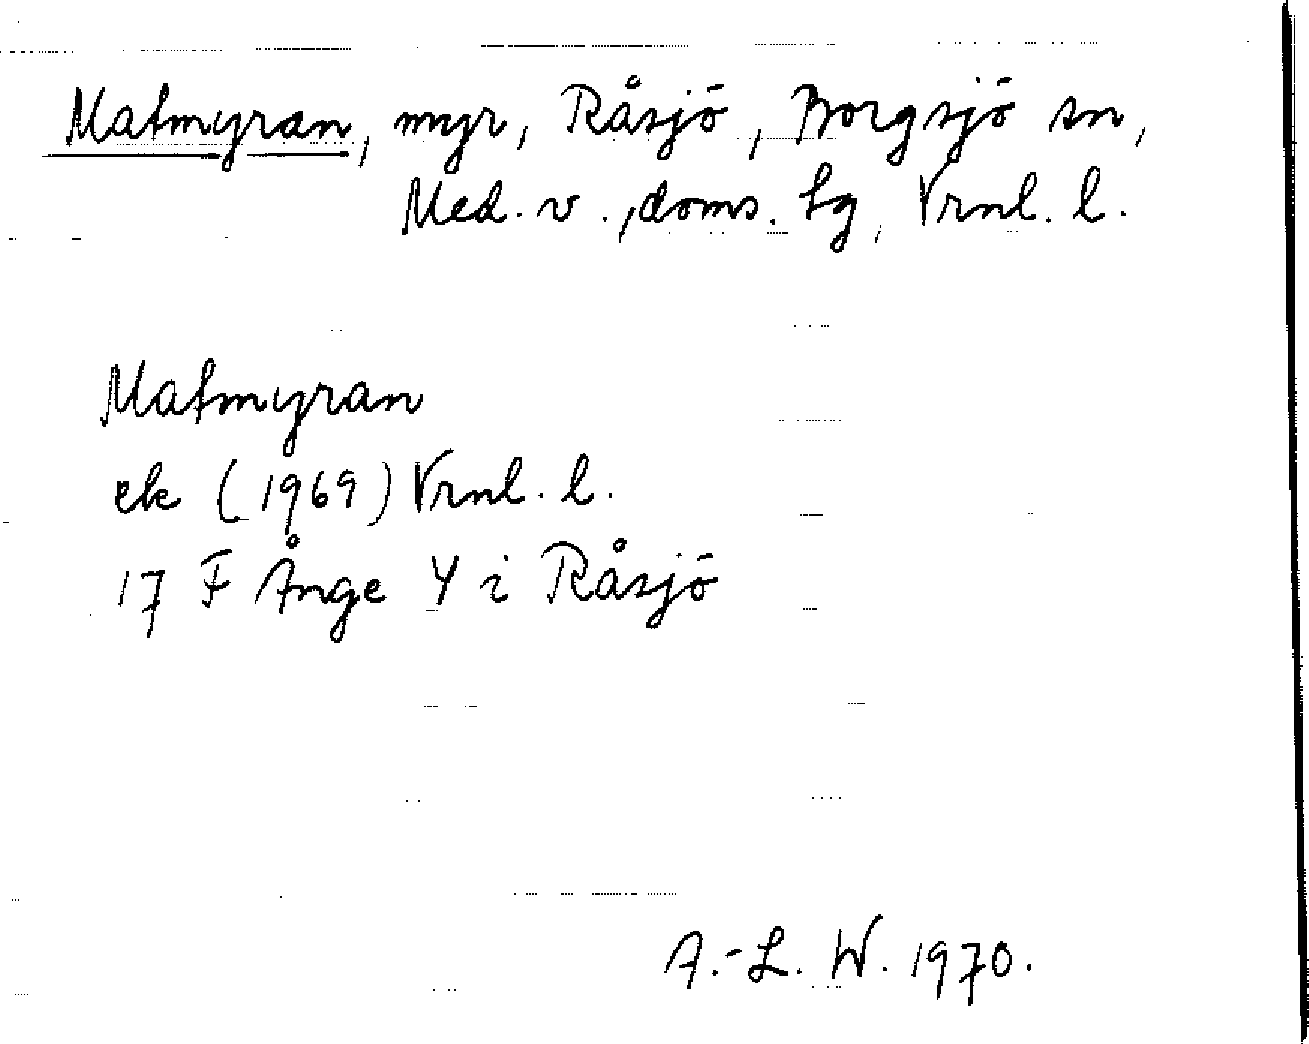 Matmyran, myr, Råsjö, Borgsjö sn,
Med. v., doms. lg, Vrnl. l.
Matmyran
ek (1969) Vrnl. l.
17 F Ånge Y i Råsjö
A.-L. W. 1970.